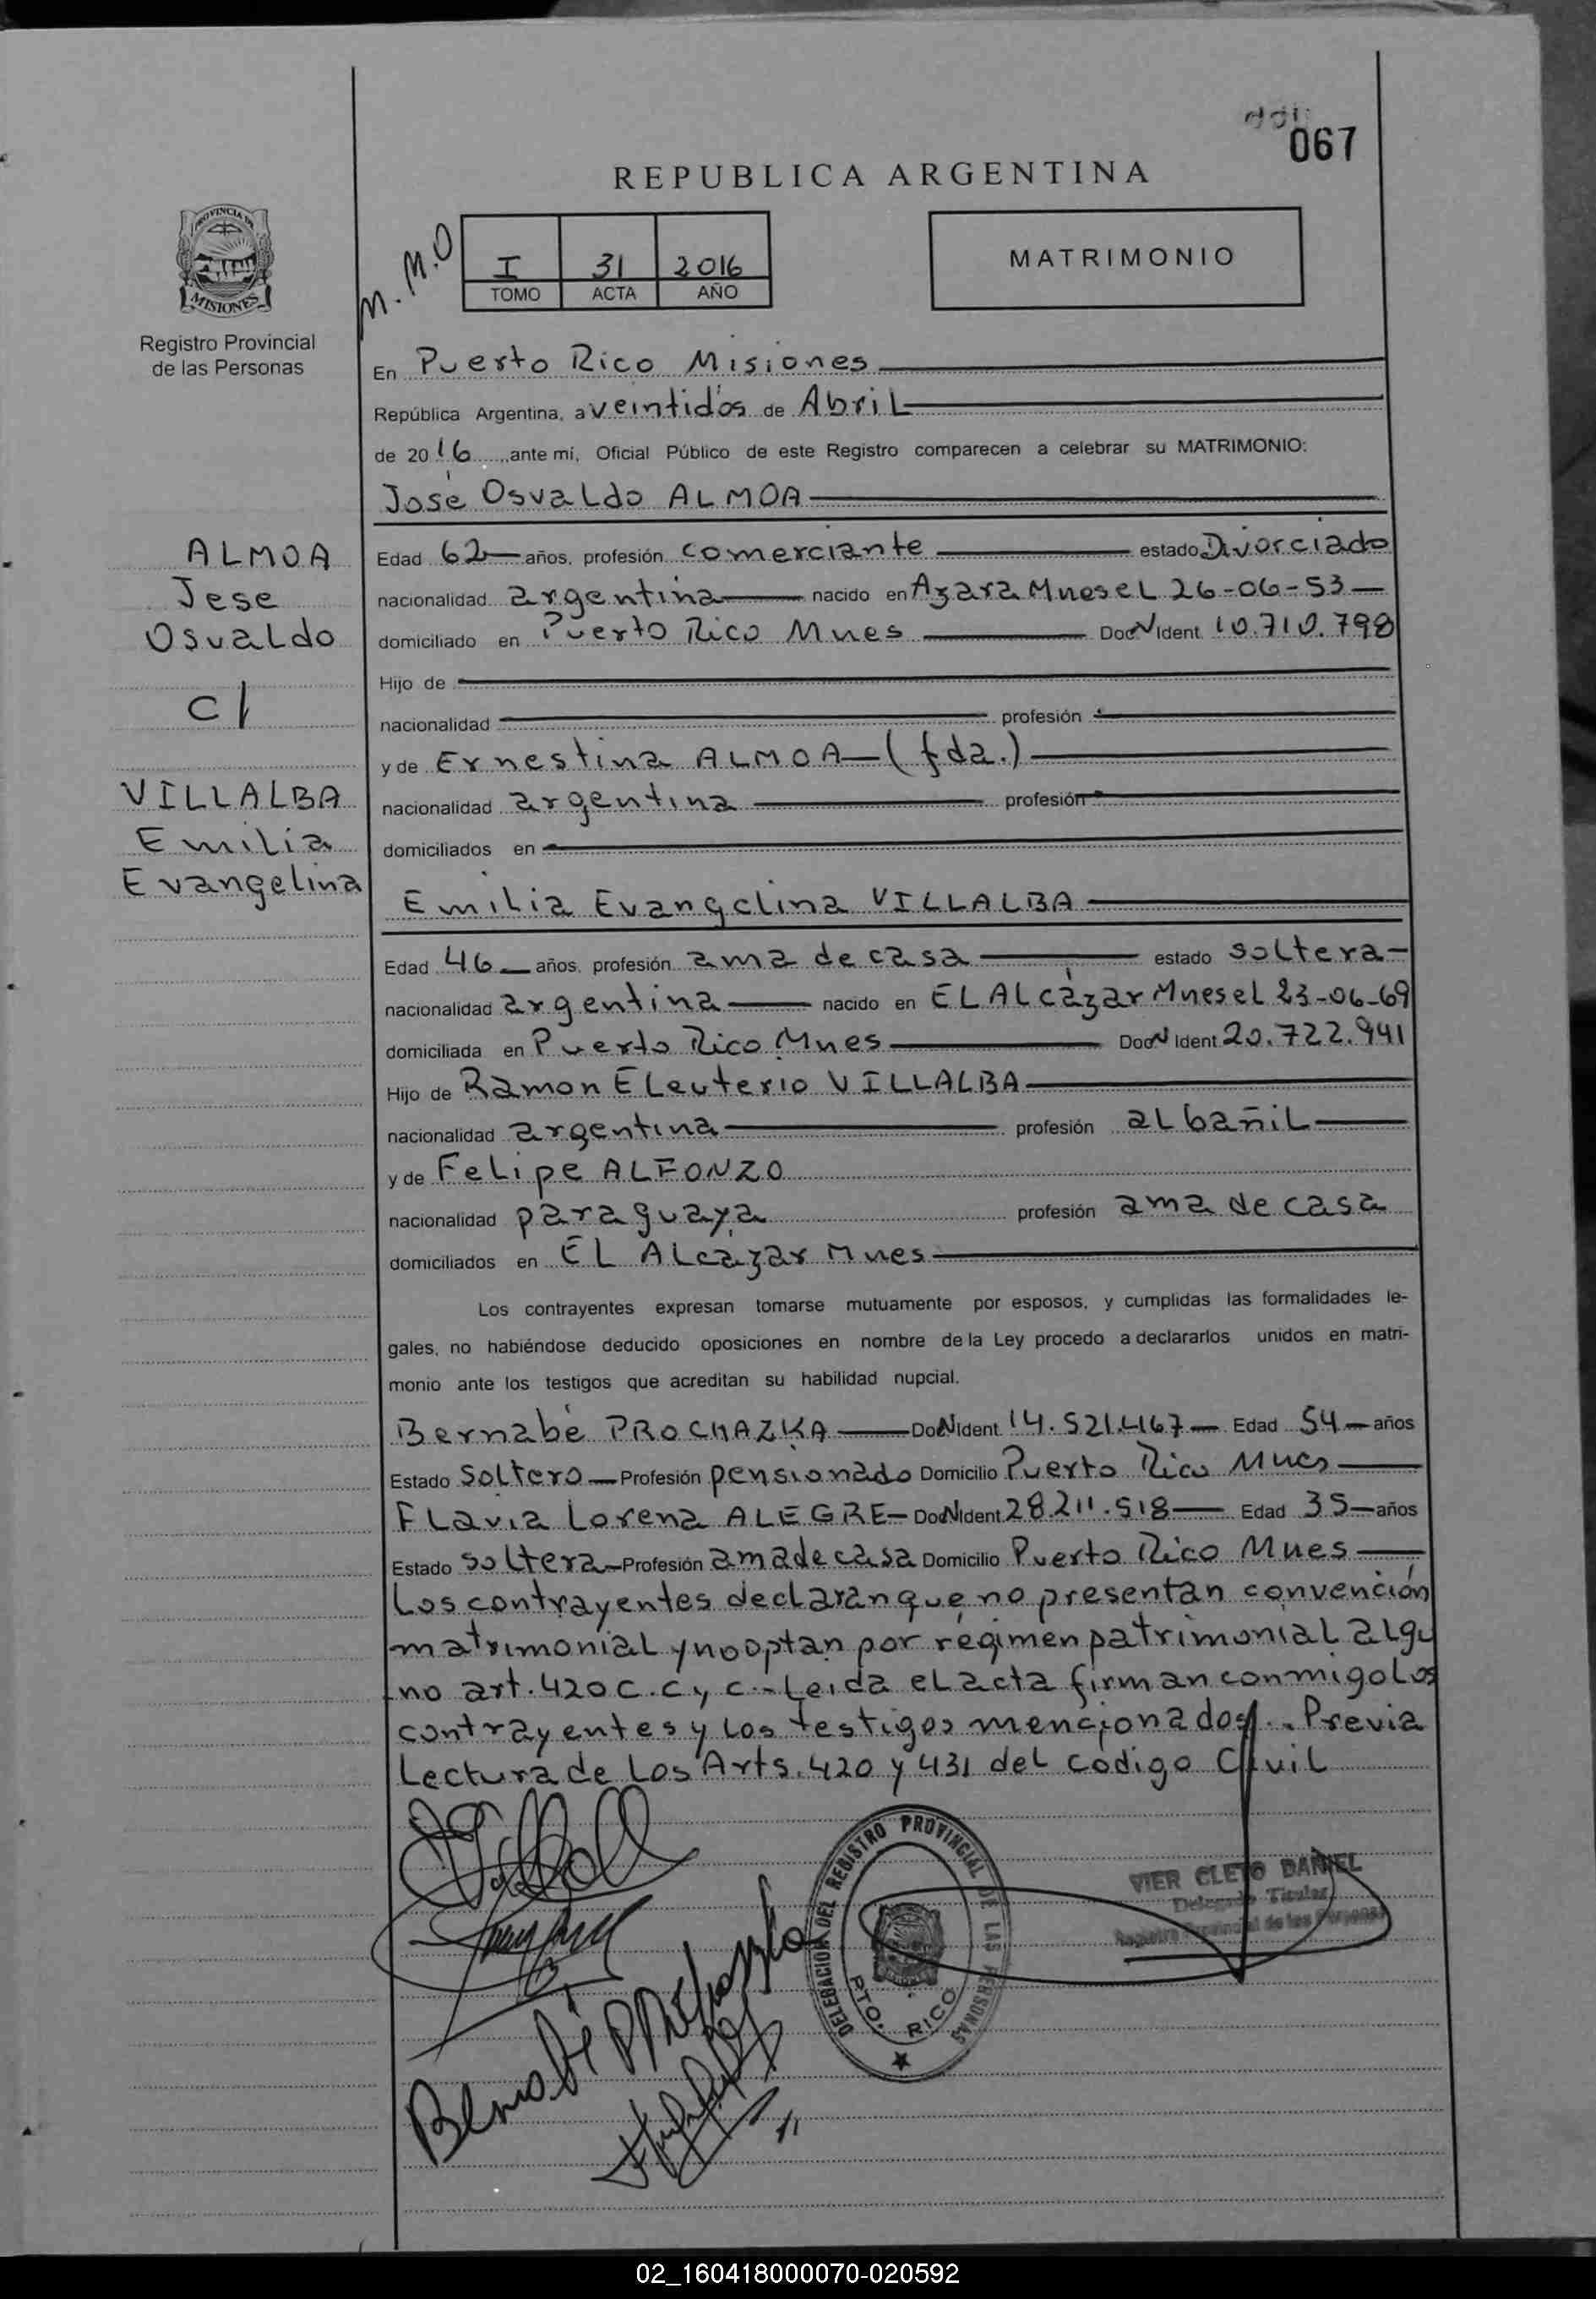 067
REPUBLICA ARGENTINA
PROVINCIA DE
MISIONES
Registro Provincial
de las Personas
M.M.O
I 31 2016
TOMO ACTA AÑO
MATRIMONIO
En Puerto Rico Misiones
República Argentina, a veintidós de Abril
de 2016 ,ante mi, Oficial Público de este Registro comparecen a celebrar su MATRIMONIO:
José Osvaldo ALMOA
ALMOA
Jose
Osvaldo
C/
VILLALBA
Emilia
Evangelina
Edad 62 años, profesión comerciante estado Divorciado
nacionalidad argentina nacido en Azara Mnes el 26-06-53
domiciliado en Puerto Rico Mnes Doc N Ident 10.710.798
Hijo de
nacionalidad profesión
y de Ernestina ALMOA (fda.)
nacionalidad argentina profesión
domiciliados en
Emilia Evangelina VILLALBA
Edad 46 años, profesión ama de casa estado soltera
nacionalidad argentina nacido en EL ALcázar Mnes el 23-06-69
domiciliada en Puerto Rico Mnes Doc N Ident 20.722.941
Hijo de Ramon ELeuterio VILLALBA
nacionalidad argentina profesión albañil
y de Felipe ALFONZO
nacionalidad paraguaya profesión ama de casa
domiciliados en EL ALcázar Mnes
Los contrayentes expresan tomarse mutuamente por esposos, y cumplidas las formalidades le-
gales, no habiéndose deducido oposiciones en nombre de la Ley procedo a declararlos unidos en matri-
monio ante los testigos que acreditan su habilidad nupcial.
Bernabé PROCHAZKA Doc N Ident 14.521.467 Edad 54 años
Estado Soltero Profesión pensionado Domicilio Puerto Rico Mnes
FLavia Lorena ALEGRE Doc N Ident 28.211.518 Edad 35 años
Estado soltera Profesión ama de casa Domicilio Puerto Rico Mnes
Los contrayentes declaran que no presentan convención
matrimonial y no optan por régimen patrimonial algu
no art. 420 C.C y C.- Leida el acta firman conmigo los
contrayentes y los testigos mencionados.. Previa
Lectura de Los Arts. 420 y 431 del codigo Civil
DELEGACION DEL REGISTRO PROVINCIAL DE LAS PERSONAS
PTO. RICO
VIER CLETO DANIEL
Delegado Titular
Registro Provincial de las Personas
Bernabé Prochazka
02_160418000070-020592